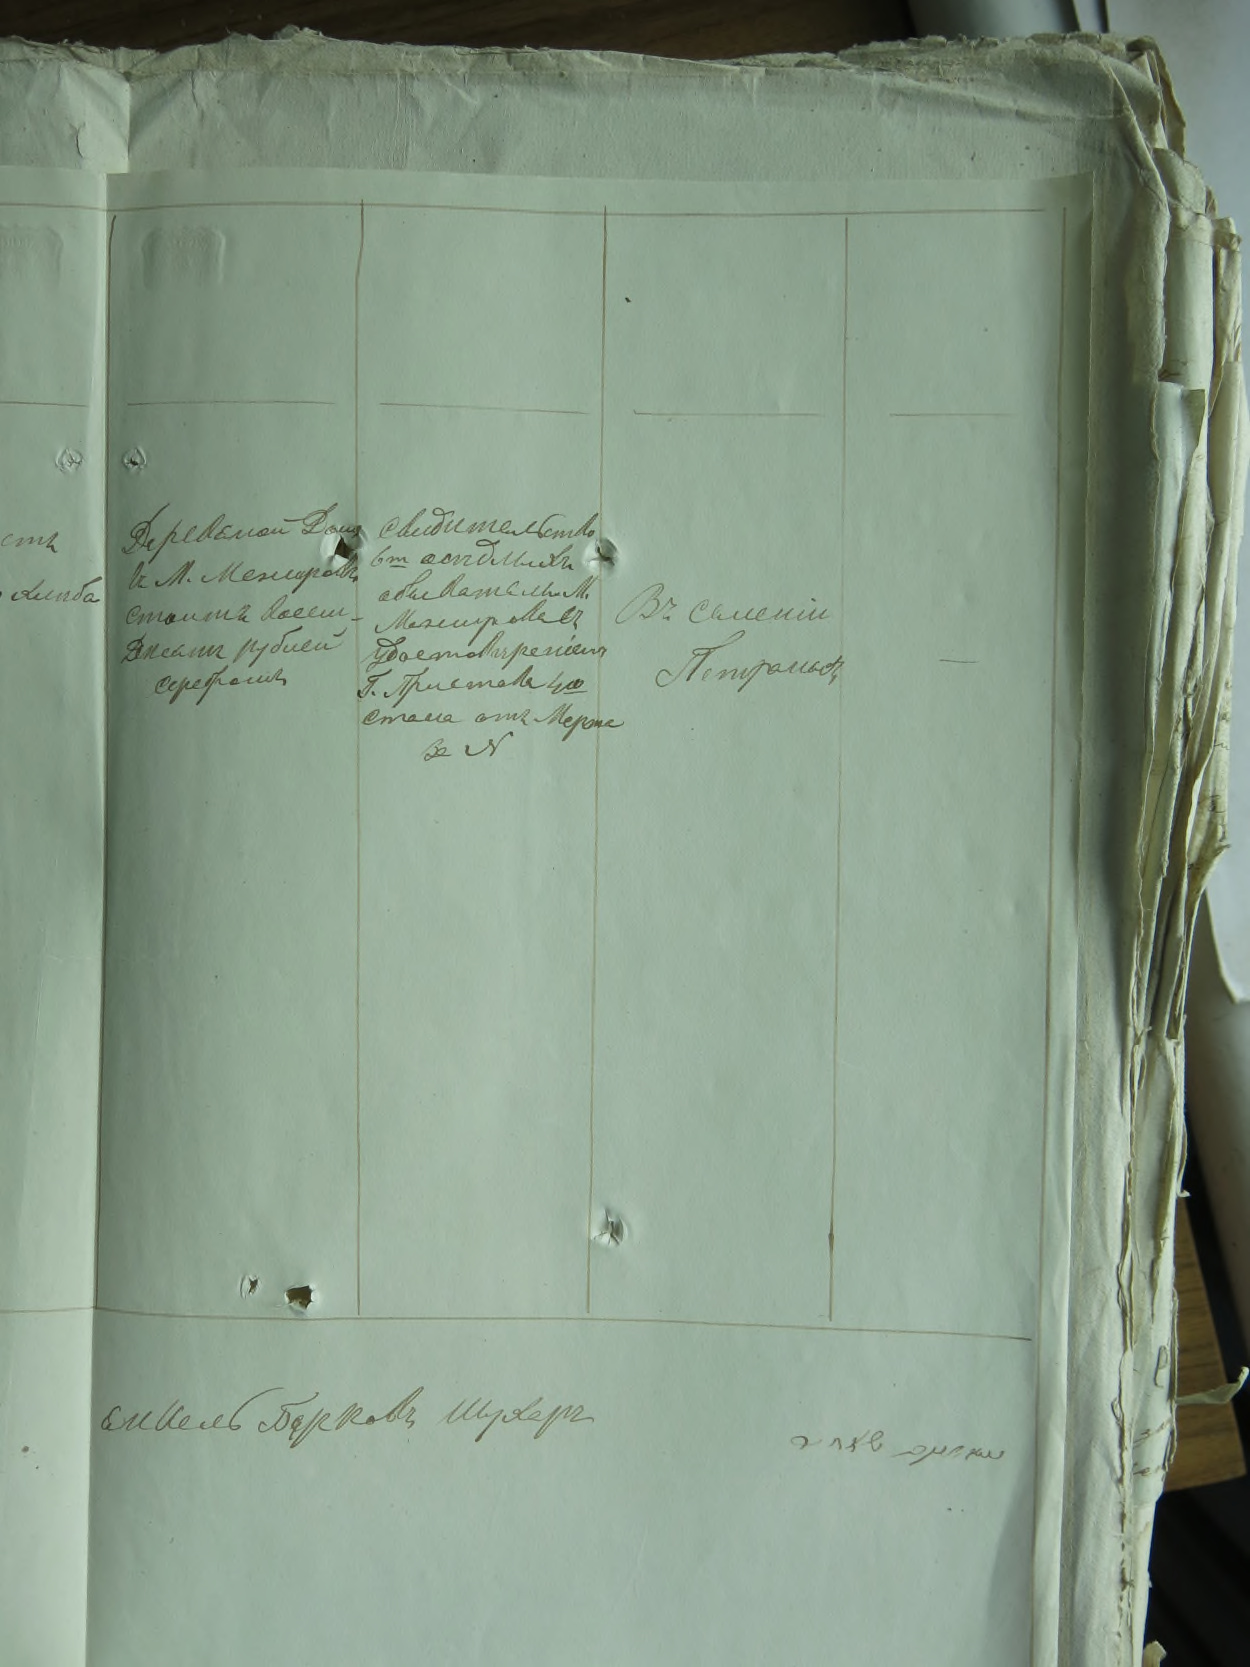 стъ
хлѣба
Деревяной Домъ
въ М. Межировѣ
стоитъ восем-
Десятъ рублей
серебромъ
свидѣтельство
отъ осѣдлыхъ
обывателей М.
Межирова съ
Удостовѣреніемъ
Г. Пристава 4го
стана отъ Марта
за N
Въ селеніи
Петрашахъ
Берковъ Шухеръ